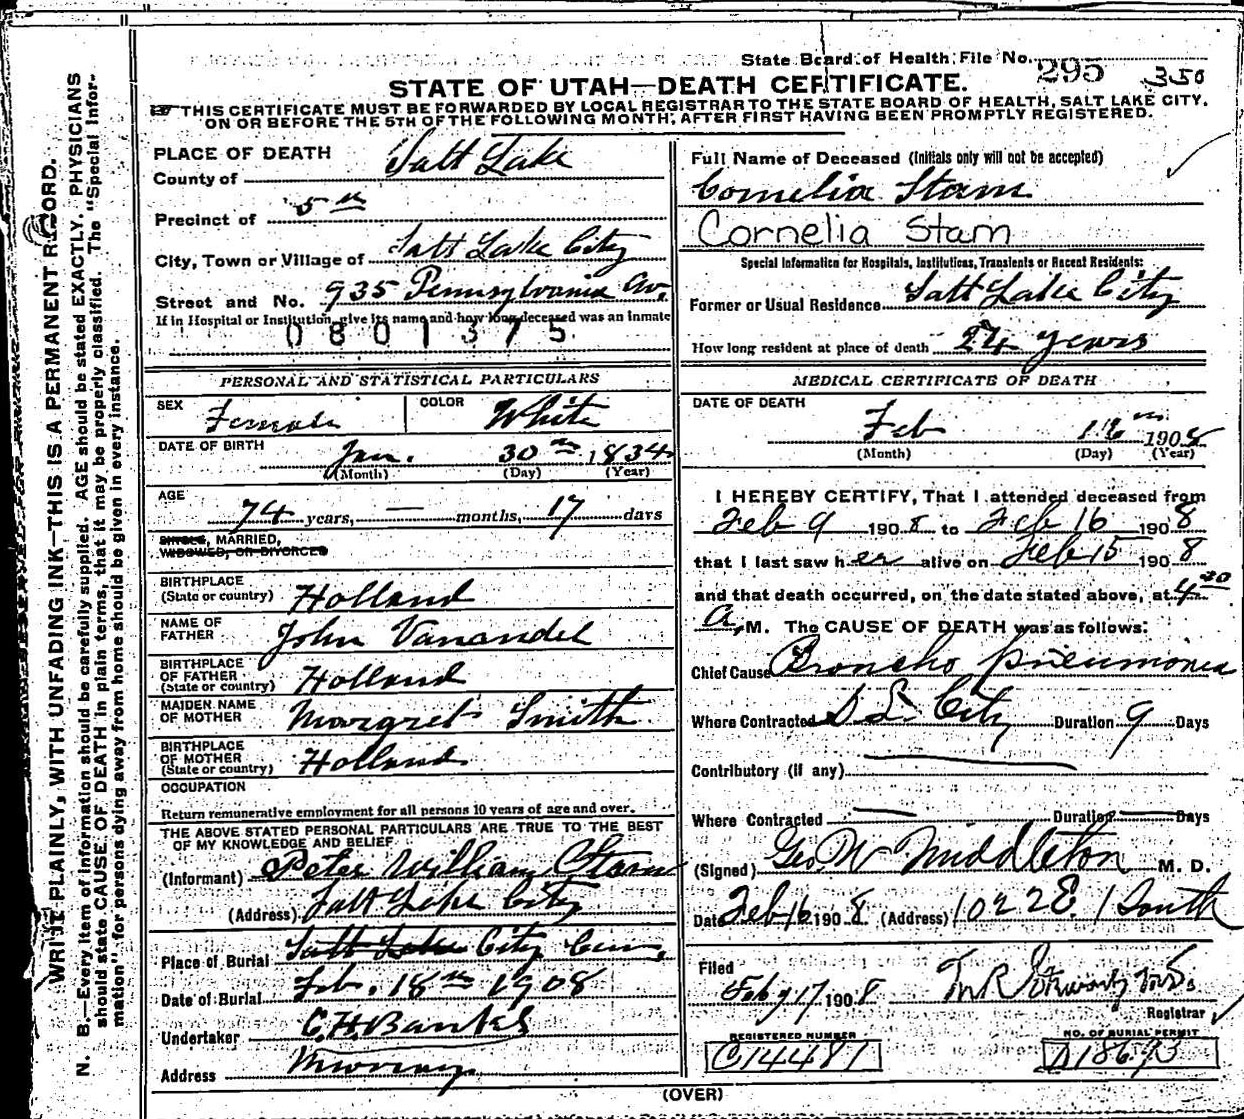 State Board of Health File No. 295 350
STATE OF UTAH—DEATH CERTIFICATE.
THIS CERTIFICATE MUST BE FORWARDED BY LOCAL REGISTRAR TO THE STATE BOARD OF HEALTH, SALT LAKE CITY,
ON OR BEFORE THE 5TH OF THE FOLLOWING MONTH, AFTER FIRST HAVING BEEN PROMPTLY REGISTERED.
WRITE PLAINLY, WITH UNFADING INK—THIS IS A PERMANENT RECORD.
N. B.—Every item of information should be carefully supplied. AGE should be stated EXACTLY. PHYSICIANS
should state CAUSE OF DEATH in plain terms, that it may be properly classified. The "Special Infor-
mation" for persons dying away from home should be given in every instance.
PLACE OF DEATH
County of Salt Lake
Precinct of 5th
City, Town or Village of Salt Lake City
Street and No. 935 Pennsylvania Av.
If in Hospital or Institution, give its name and how long deceased was an inmate
0801375
PERSONAL AND STATISTICAL PARTICULARS
SEX Female COLOR White
DATE OF BIRTH Jan. 30th 1834
(Month) (Day) (Year)
AGE
74 years, — months, 17 days
SINGLE, MARRIED,
WIDOWED, OR DIVORCED
BIRTHPLACE
(State or country) Holland
NAME OF
FATHER John Vanandel
BIRTHPLACE
OF FATHER
(State or country) Holland
MAIDEN NAME
OF MOTHER Margret Smith
BIRTHPLACE
OF MOTHER
(State or country) Holland
OCCUPATION
Return remunerative employment for all persons 10 years of age and over.
THE ABOVE STATED PERSONAL PARTICULARS ARE TRUE TO THE BEST
OF MY KNOWLEDGE AND BELIEF
(Informant) Peter William Stam
(Address) Salt Lake City
Place of Burial Salt Lake City Cem,
Date of Burial Feb. 18th 1908
Undertaker C.H. Banks
Address Murray
Full Name of Deceased (Initials only will not be accepted)
Cornelia Stam
Cornelia Stam
Special Information for Hospitals, Institutions, Transients or Recent Residents:
Former or Usual Residence Salt Lake City
How long resident at place of death 24 years
MEDICAL CERTIFICATE OF DEATH
DATE OF DEATH
Feb 16th 1908
(Month) (Day) (Year)
I HEREBY CERTIFY, That I attended deceased from
Feb 9 1908 to Feb 16 1908
that I last saw her alive on Feb 15 1908
and that death occurred, on the date stated above, at 4 30
a. M. The CAUSE OF DEATH was as follows:
Chief Cause Broncho pneumonia
Where Contracted S L City Duration 9 Days
Contributory (if any)
Where Contracted — Duration — Days
(Signed) Geo. W Middleton M. D.
Date Feb 16 1908 (Address) 1022 E. 1 South
Filed
Feb 17 1908
Registrar
REGISTERED NUMBER NO. OF BURIAL PERMIT
C14481 D18693
(OVER)